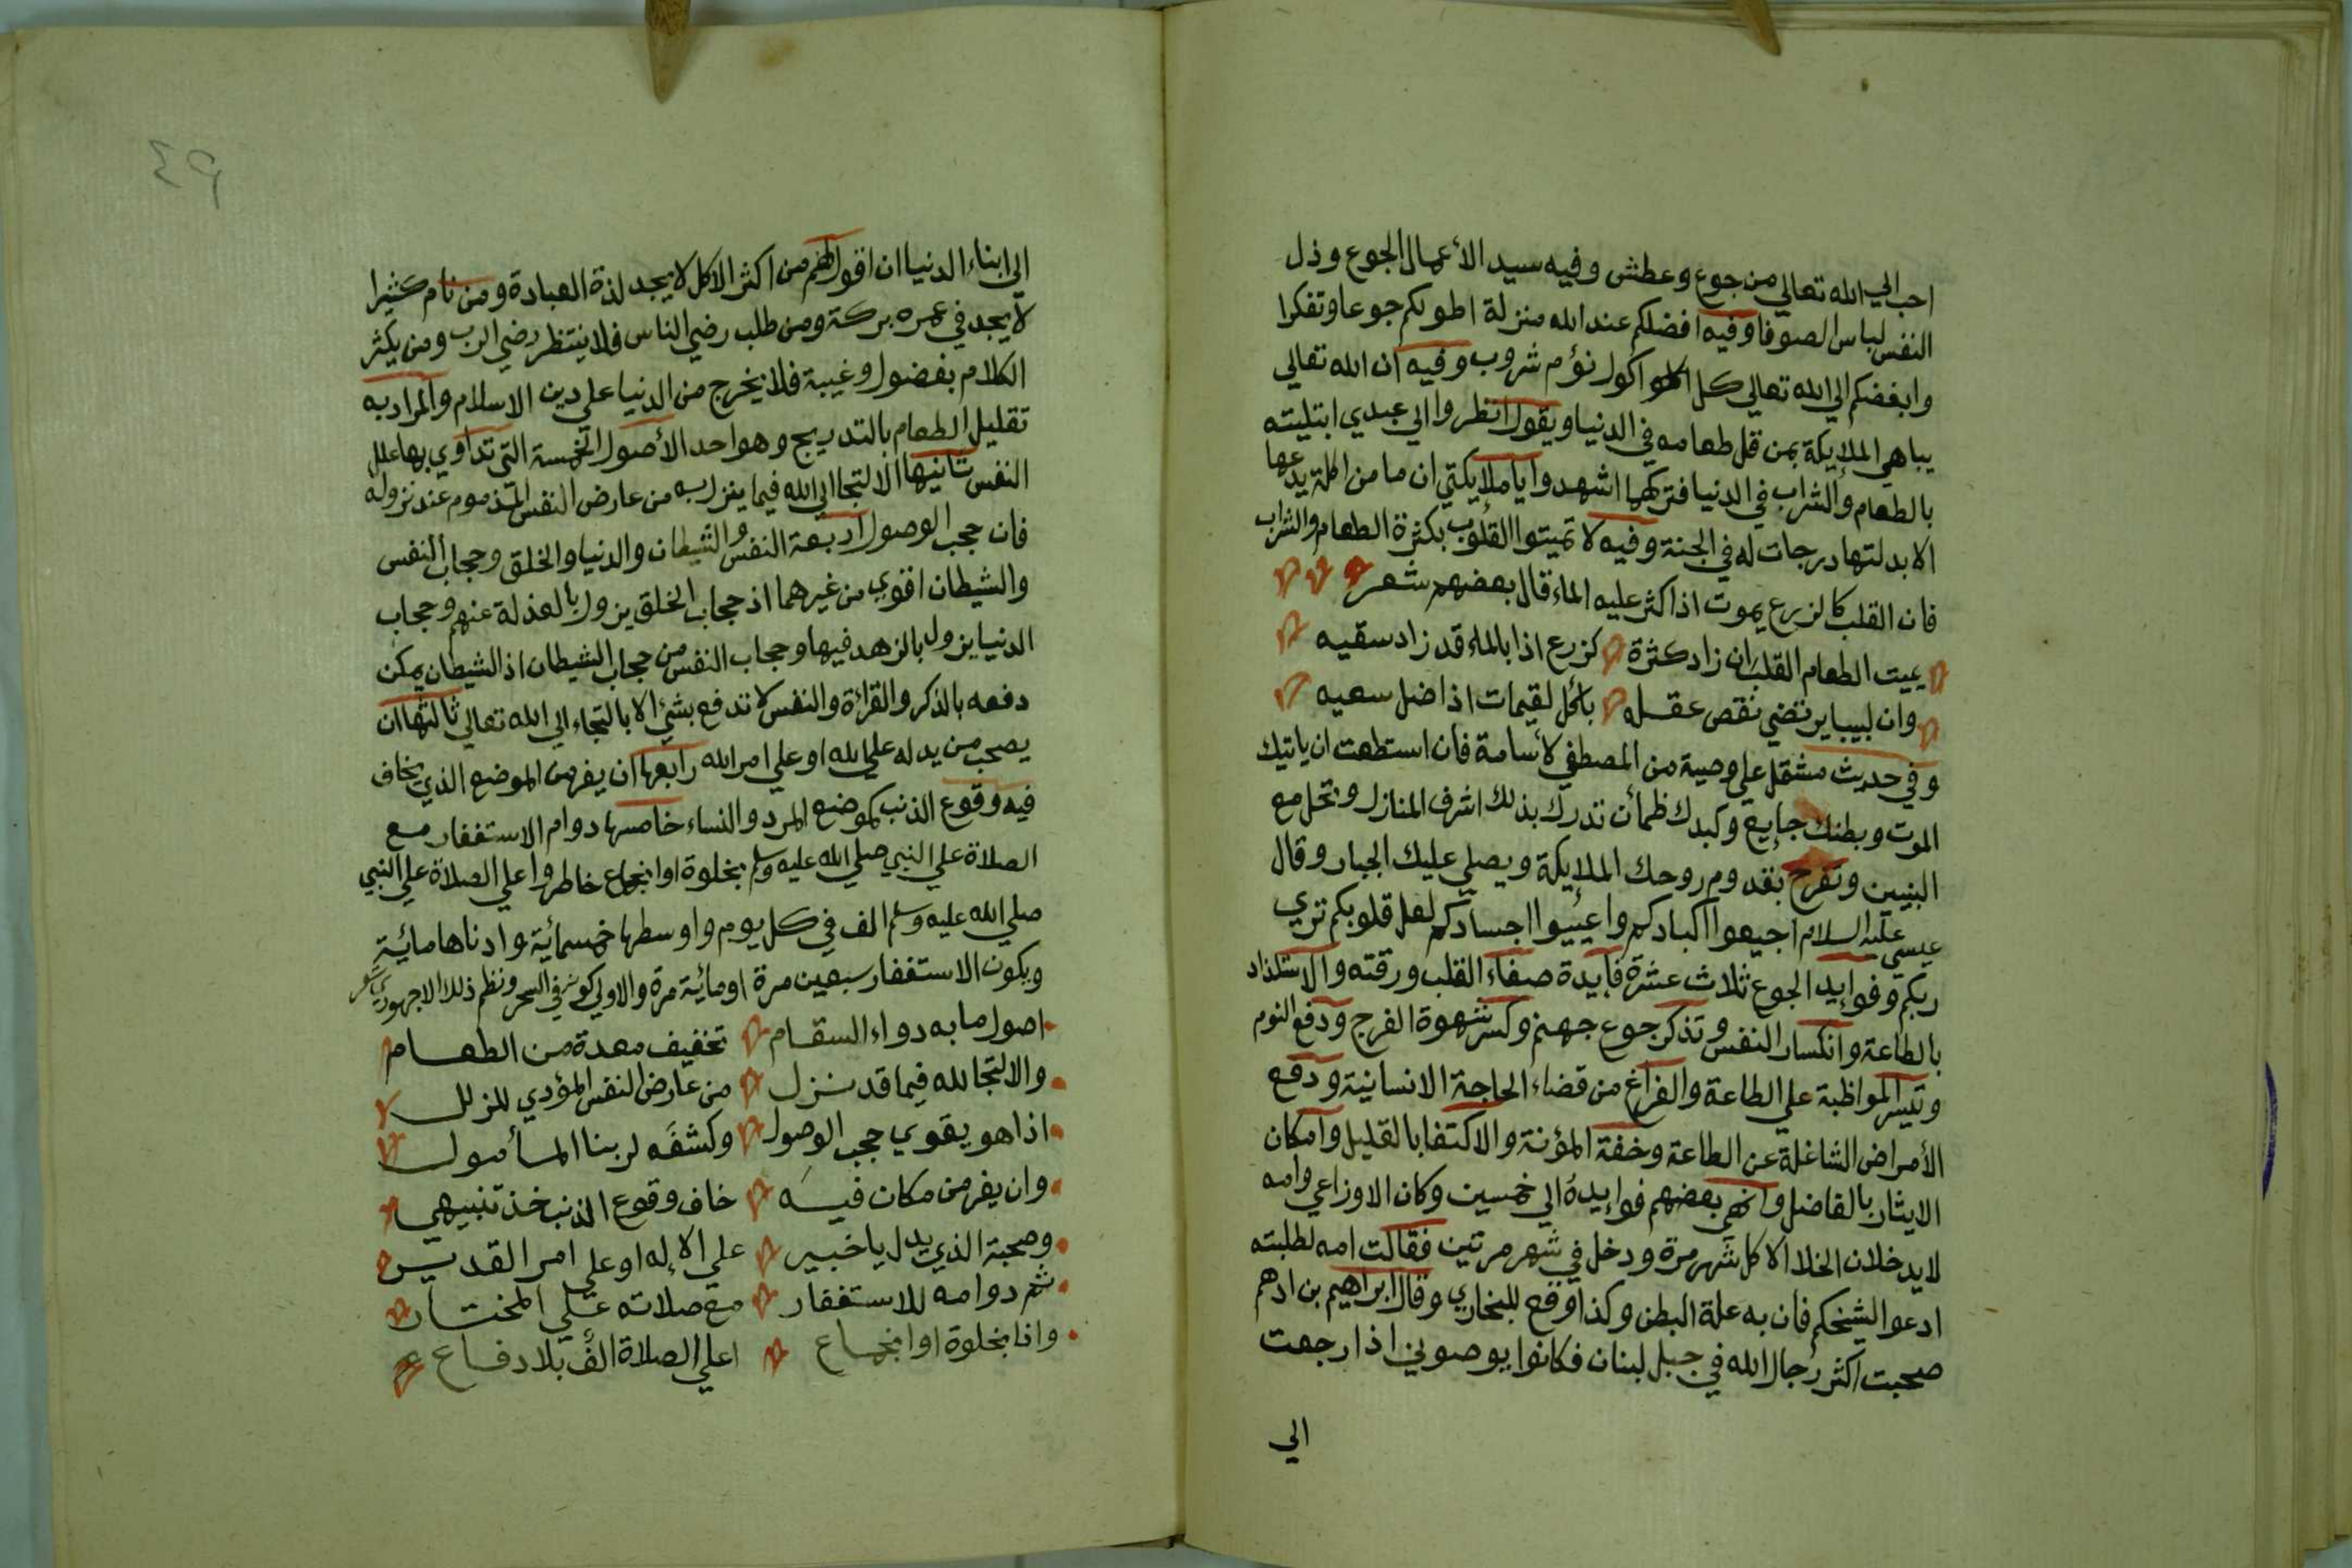 احب الي الله تعالي من جوع وعطش وفيه سيد الأعمال الجوع وذل
النفس لباس الصوف وفيه افضلكم عند الله منزلة اطولكم جوعا وتفكرا
وابغضكم الي الله تعالي كل اكول نؤم شروب وفيه ان الله تعالي
يباهي الملايكة بمن قل طعامه في الدنيا ويقول انظروا الي عبدي ابتليته
بالطعام والشراب في الدنيا فتركهما اشهدوا ياملايكتي ان ما من اكلة يدعها
الا بدلتها درجات له في الجنة وفيه لا تميتوا القلوب بكثرة الطعام والشراب
فان القلب كالزرع يموت اذا كثر عليه الماء قال بعضهم شعر
يميت الطعام القلب ان زاد كثرة كزرع اذا بالماء قد زاد سقيه
وان لبيبا يرتضي نقص عقله باكل لقيمات اذا ضل سعيه
وفي حديث مشتمل علي وصية من المصطفي لأسامة فان استطعت ان ياتيك
الموت وبطنك جايع وكبدك ظمأن تدرك بذلك اشرف المنازل وتحل مع
النبيين وتفرح بقدوم روحك الملايكة ويصلي عليك الجبار وقال
عيسي عليه السلام اجيعوا اكبادكم واعيوا اجسادكم لعل قلوبكم تري
ربكم وفوايد الجوع ثلاث عشرة فايدة صفاء القلب ورقته والاستلذاد
بالطاعة وانكسار النفس وتذكر جوع جهنم وكسر شهوة الفرج ودفع النوم
وتيسر المواظبة علي الطاعة والفراغ من قضاء الحاجة الانسانية ودفع
الأمراض الشاغلة عن الطاعة وخفة المؤنة والاكتفا بالقليل وامكان
الايثار بالفاضل وانهي بعضهم فوايده الي خمسين وكان الاوزاعي وامه
لا يدخلان الخلا الا كل شهر مرة ودخل في شهر مرتين فقالت امه لطلبته
ادعوا لشيخكم فان به علة البطن وكذا وقع للبخاري وقال ابراهيم بن ادهم
صحبت اكثر رجال الله في جبل لبنان فكانوا يوصوني اذا رجعت
الي
٤٩
الي ابناء الدنيا ان اقول لهم من اكثر الاكل لا يجد لذة العبادة ومن نام كثيرا
لا يجد في عمره بركة ومن طلب رضي الناس فلا ينتظر رضي الرب ومن يكثر
الكلام بفضول وغيبة فلا يخرج من الدنيا علي دين الاسلام والمراد به
تقليل الطعام بالتدريج وهو احد الأصول الخمسة التي تداوي بها علل
النفس ثانيها الالتجا الي الله فيما ينزل به من عارض النفس المذموم عند نزوله
فان حجب الوصول اربعة النفس والشيطان والدنيا والخلق وحجاب النفس
والشيطان اقوي من غيرهما اذ حجاب الخلق يزول بالعذلة عنهم وحجاب
الدنيا يزول بالزهد فيها وحجاب النفس من حجاب الشيطان اذ الشيطان يمكن
دفعه بالذكر والقرأة والنفس لا تدفع بشئ الا بالتجاء الي الله تعالي ثالثها ان
يصحب من يدله علي الله او علي امر الله رابعها ان يفر من الموضع الذي يخاف
فيه وقوع الذنب كموضع المرد والنساء خامسها دوام الاستغفار مع
الصلاة علي النبي صلي الله عليه وسلم بخلوة او انجماع خاطر واعلي الصلاة علي النبي
صلي الله عليه وسلم الف في كل يوم واوسطها خمسمائية وادناها مائية
ويكون الاستغفار سبعين مرة او مائية مرة والاولي كونه في السحر ونظم ذلك الاجهوري شعر
اصول ما به دواء السقام تخفيف معدة من الطعام
والالتجا لله فيما قد نزل من عارض النفس المؤدي للزلل
اذا هو يقوي حجب الوصول وكشفه لربنا المأمول
وان يفر من مكان فيه خاف وقوع الذنب خذ تنبيهي
وصحبة الذي يدل يا خبير علي الاله او علي امر القدير
ثم دوامه للاستغفار مع صلاته علي المختار
وانا بخلوة او انجماع اعلي الصلاة الف بلا دفاع